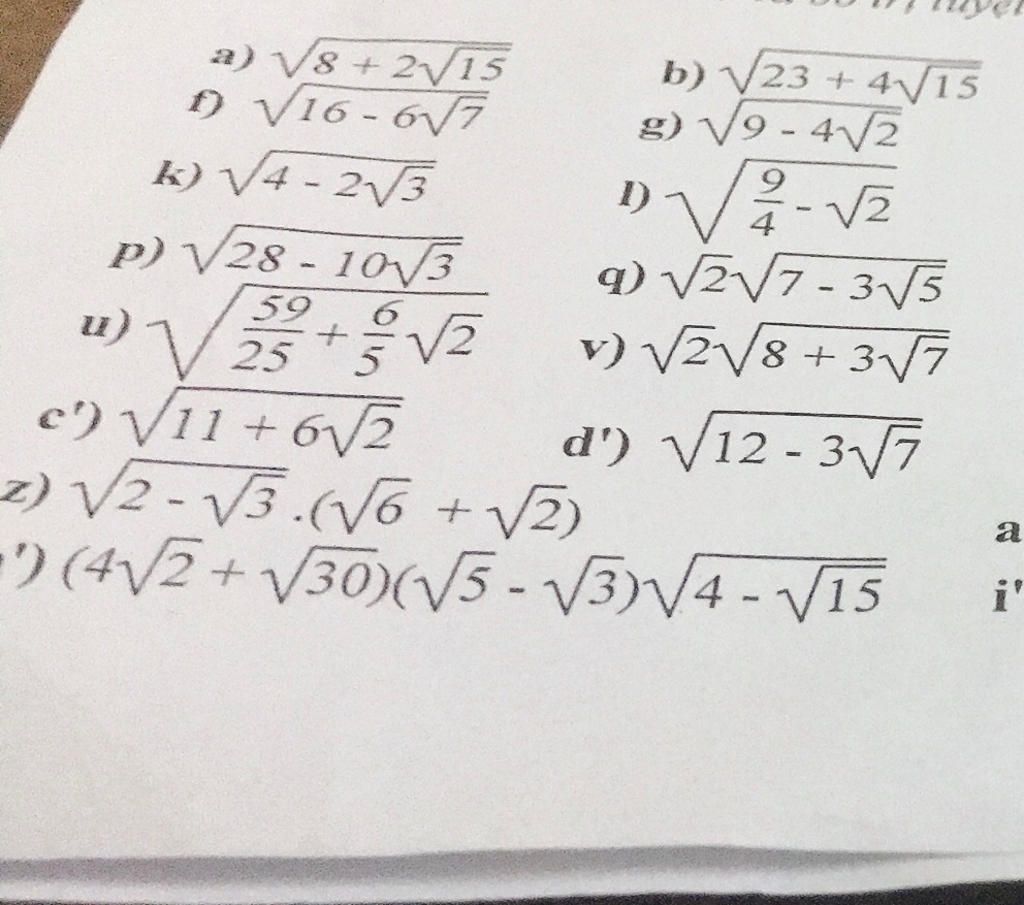 a) √(8 + 2√15) b) √(23 + 4√15)
f) √(16 - 6√7) g) √(9 - 4√2)
k) √(4 - 2√3) l) √(9/4 - √2)
p) √(28 - 10√3) q) √2√(7 - 3√5)
u) √(59/25 + 6/5 √2) v) √2√(8 + 3√7)
c') √(11 + 6√2) d') √(12 - 3√7)
z) √(2 - √3).(√6 + √2) a
') (4√2 + √30)(√5 - √3)√(4 - √15) i'